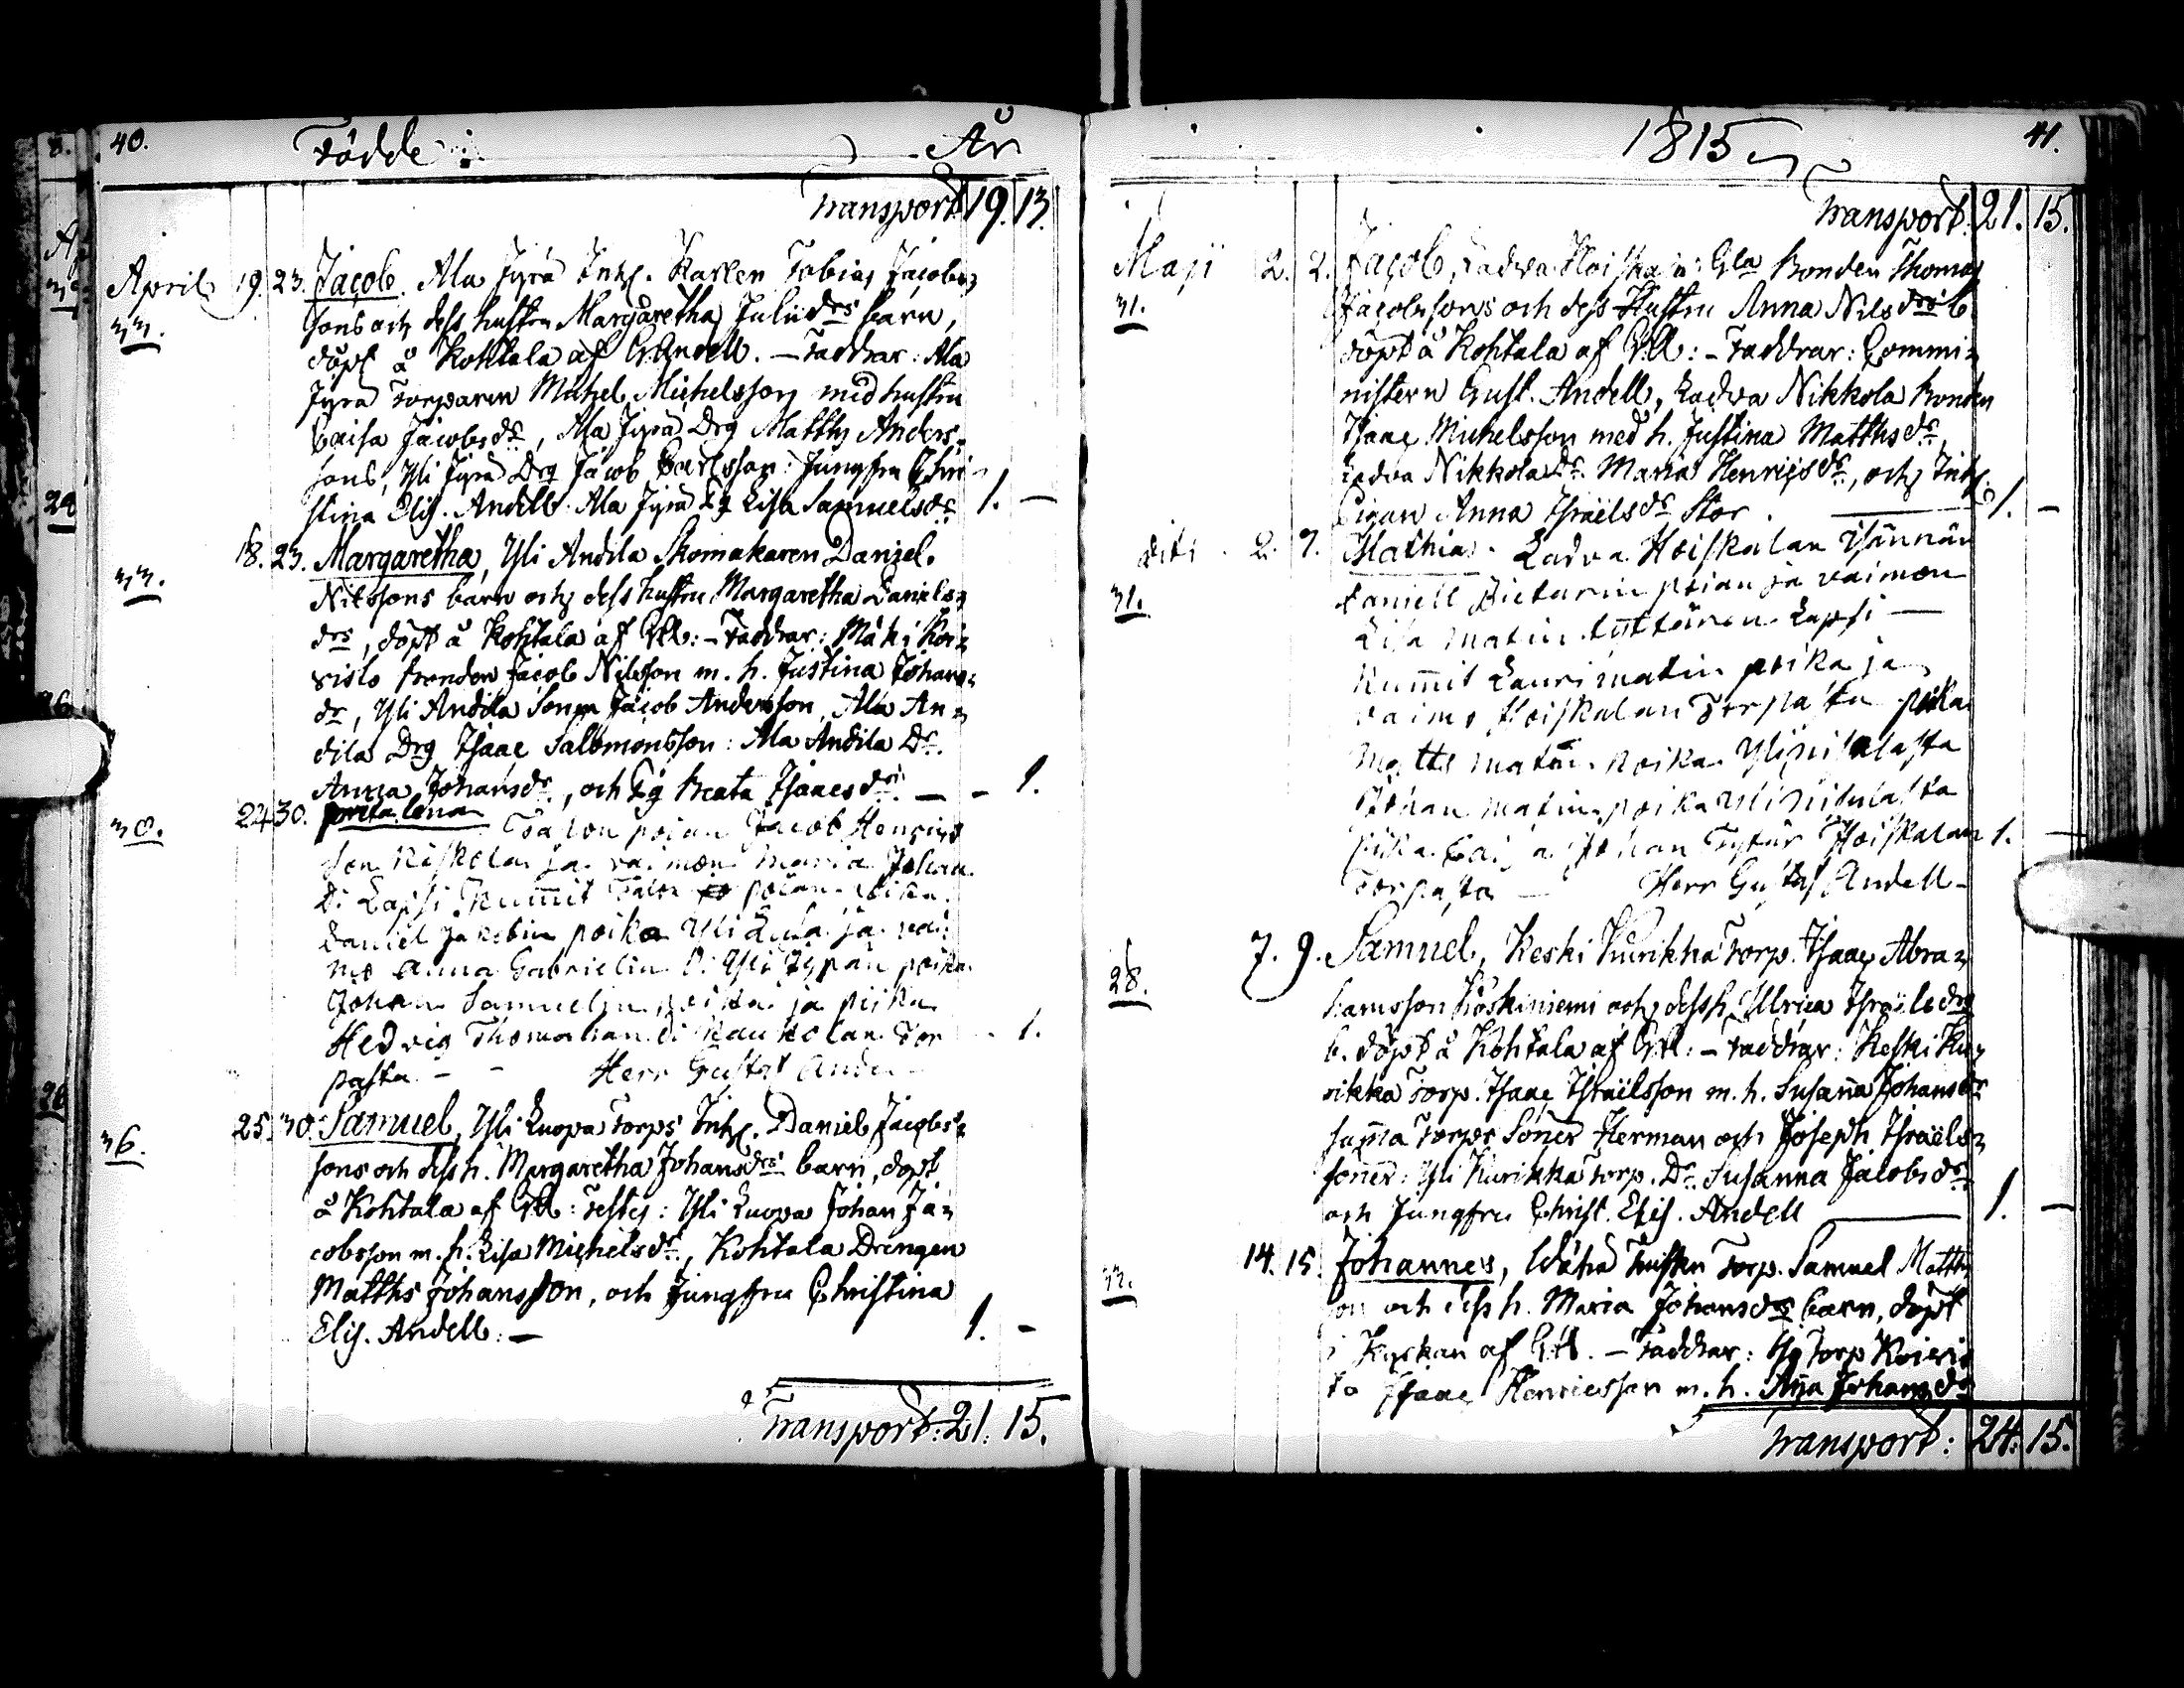 40. Födde År
Transport 19. 13.
April 19. 23. Jacob. Ala Jyrä Inhs. Karlen Tobias Jacobs
sons och dess hustru Margaretha Juliidrs barn,
döpt å Kohtala af G. Andell. – Faddrar: Ala
Jyrä Torparen Michel Michelsson med hustru
Caisa Jacobsdr, Ala Jyrä Drg Matths Anders-
sons, Yli Jyrä Drg Jacob Carlsson: Jungfru Chri-
stina Elis. Andell. Ala Jyrä Pg Lisa Samuelsdr 1. –
33.
18. 23. Margaretha, Yli Andila Skomakaren Daniel
Nilssons barn och dess hustru Margaretha Daniels
drs, döpt å Kohtala af GAll: – Faddrar: Mäki Koi-
visto bonden Jacob Nilsson m. h. Justina Johans
dr, Yli Andila Sonen Jacob Andersson, Ala An-
dila Drg Isaac Salomonsson: Ala Andila Dr.
Anna Johansdr., och Pg Beata Isaacsdr. – – 1.
33.
24 30. preta lena Talon pojan Jacob Henrics
son Kiskola ja vaimon Maria Johan
D: Lapsi Kummit Talon pojan poika
Daniel Jakobin poika Yli Luka ja vai
mo Anna Gabrielin D: Yli Jypän poika
Johan Samuelin poika ja piika
Hedvig Thomahan di Kaukolan Tor - 1.
pasta – – Herr Gustaf Andell
30.
25. 30. Samuel, Yli Luopa Torps Inhs. Daniel Jacobs
sons och dess h. Margaretha Johansdrs barn, döpt
å Kohtala af GAll: Testes: Yli Luopa Johan Ja-
cobsson m. h. Lisa Michelsdr., Kohtala Drengen
Matths Johansson, och Jungfru Christina
Elis. Andell: – 1. –
36.
Transport: 21. 15.
1815 41.
Transport: 21. 15.
Maji 2. 2. Jacob, Ladva Hoiskala Gla Bonden Thomas
Jacobssons och dess Hustru Anna Nilsdrs b
döpt å Kohtala af GAll: – Faddrar: Commi-
nistern Gust. Andell, Ladva Nikkola Bonden
Isaac Michelsson med h. Justina Matthsdr,
Ladva Nikkola Dr. Maria Henricsdr, och Inhs.
Pigan Anna Israëlsdr Stor. 1. –
31.
dito 2. 7. Mathias. Ladva Hoiskalan Isännän
Daniell Pietarin pojan ja vaimon
Lisa Matin tyttären Lapsi –
Kummit Lauri matin poika ja
vaimo Hoiskalan Torpasta piika
Matts matin poika
Johan matin poika
piika Caisa Johan Tytär Hoiskalan 1. –
Torpasta – Herr Gustaf Andell –
31.
7. 9. Samuel, Keski Kurikka Torp. Isaac Abra-
hamsson Koskiniemi och dess h. Ulrica Israëlsdrs
b. döpt å Kohtala af GAll: – Faddrar: Keski Ku-
rikka Torp. Isaac Israëlsson m. h. Susanna Johansdr
samma Torps Söner Herman och Joseph Israëls-
söner: Yli Kurikka Torp. Dr. Susanna Jacobsdr.
och Jungfru Christ. Elis. Andell 1. –
28.
14. 15. Johannes, Wähä Torp. Samuel Matths
son och dess h. Maria Johansdrs barn, döpt
i Kyrkan af GAll. – Faddrar: Torp Koivis
to Isaac Henricsson m. h. Anna Johansdr
33.
Transport: 24. 15.